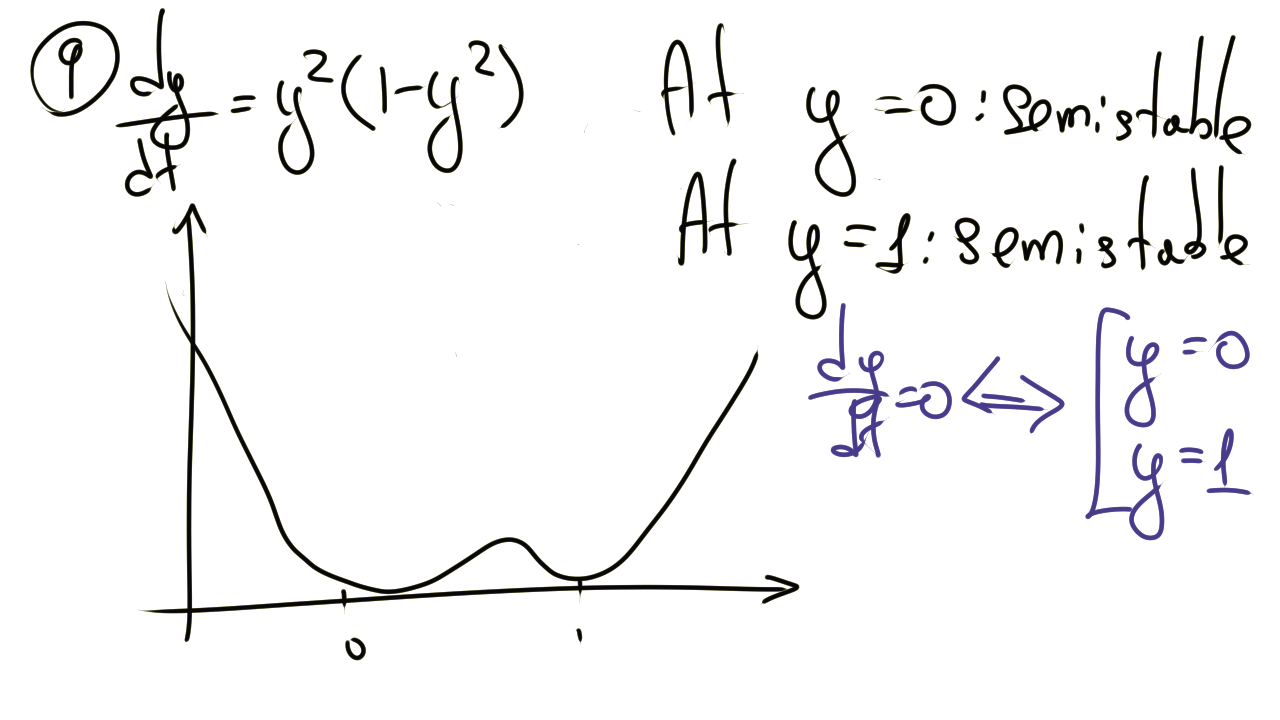 9 dy/dt = y²(1-y²)
At y = 0 : semistable
At y = 1 : semistable
dy/dt = 0 ⇔ [ y = 0
y = 1
0 1